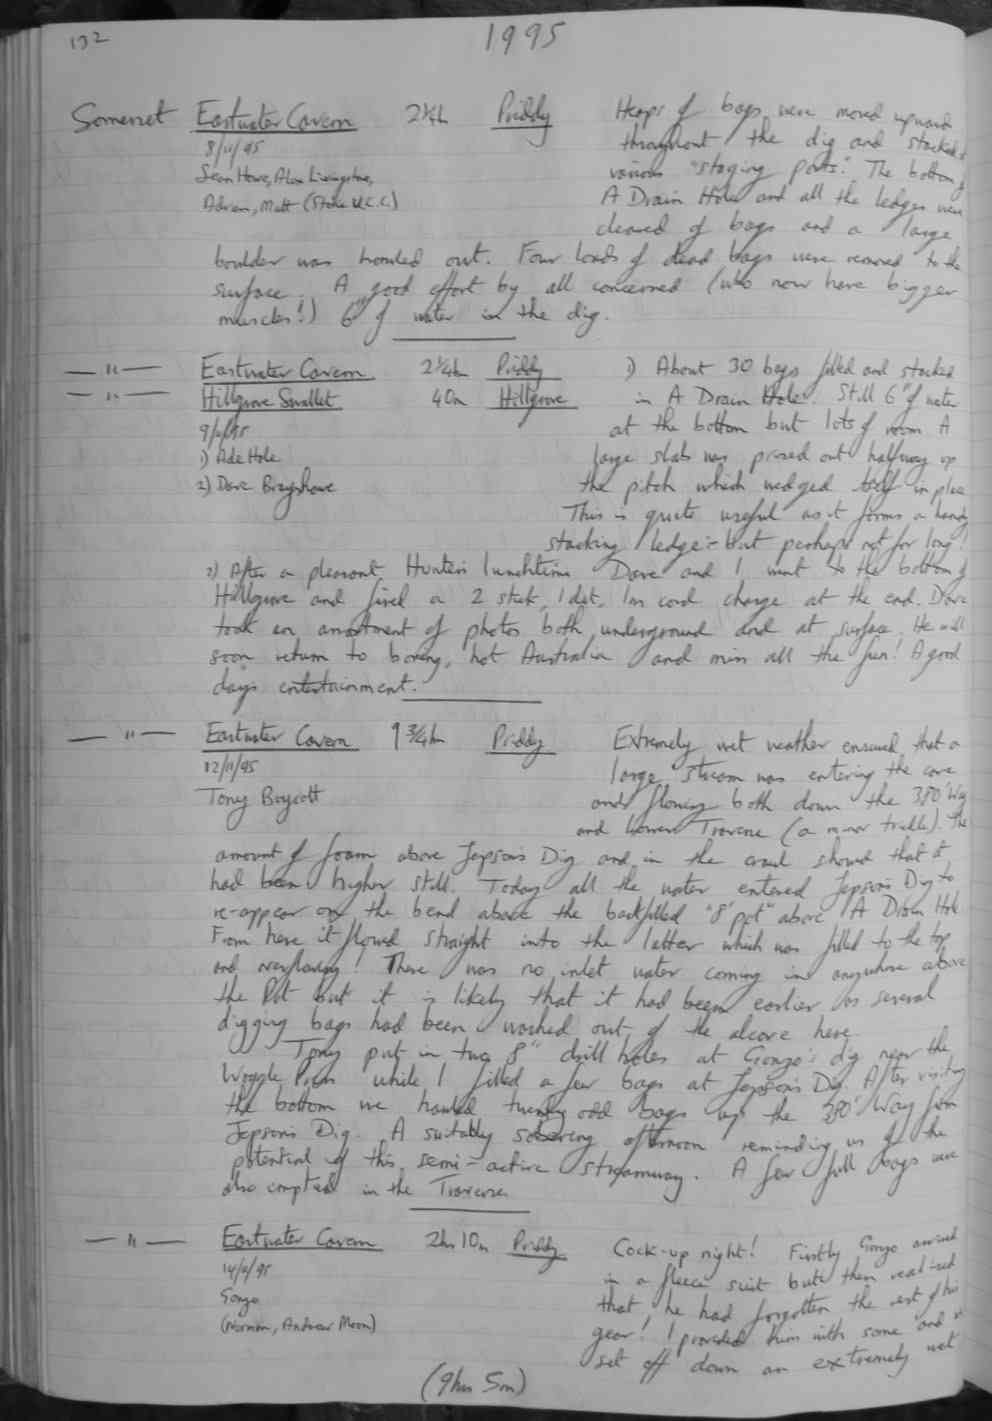 132
1995
Somerset Eastwater Cavern 2¼h Priddy Heaps of bags were moved upward
8/11/95 throughout the dig and stacked at
Sean Howe, Alex Livingstone, various "staging posts". The bottom of
Adrian, Matt (Stoke U.C.C.) A Drain Hole and all the ledges were
cleared of bags and a large
boulder was hauled out. Four loads of dead bags were removed to the
surface. A good effort by all concerned (who now have bigger
muscles!) 6" of water in the dig.
— " — Eastwater Cavern 2¼h Priddy 1) About 30 bags filled and stacked
— " — Hillgrove Swallet 40m Hillgrove in A Drain Hole. Still 6" of water
9/11/95 at the bottom but lots of room. A
1) Ade Hole large slab was prised out halfway up
2) Dave Bragshawe the pitch which wedged itself in place
This is quite useful as it forms a handy
stacking ledge - but perhaps not for long!
2) After a pleasant Hunters lunchtime Dave and I went to the bottom of
Hillgrove and fired a 2 stick, 1 det, 1m cord charge at the end. Dave
took an assortment of photos both underground and at surface. He will
soon return to boring, hot Australia and miss all the fun! A good
day's entertainment.
— " — Eastwater Cavern 1¾h Priddy Extremely wet weather ensured that a
12/11/95 large stream was entering the cave
Tony Boycott and flowing both down the 380' Way
and Lower Traverse (a minor trickle). The
amount of foam above Jepson's Dig and in the crawl showed that it
had been higher still. Today all the water entered Jepson's Dig to
re-appear on the bend above the backfilled "8' pot" above A Drain Hole
From here it flowed straight into the latter which was filled to the top
and overflowing! There was no inlet water coming in anywhere above
the Pot but it is likely that it had been earlier as several
digging bags had been washed out of the alcove here.
Tony put in two 8" drill holes at Gonzo's dig near the
Woggle Press while I filled a few bags at Jepson's Dig. After visiting
the bottom we hauled twenty odd bags up the 380' Way from
Jepson's Dig. A suitably sobering afternoon reminding us of the
potential of this semi-active streamway. A few full bags were
also emptied in the Traverse.
— " — Eastwater Cavern 2hr 10m Priddy Cock-up night! Firstly Gonzo arrived
14/11/95 in a fleece suit but then realised
Gonzo that he had forgotten the rest of his
(Norman, Andrew Moon) gear! I provided him with some and we
set off down an extremely wet
(9hrs 5m)